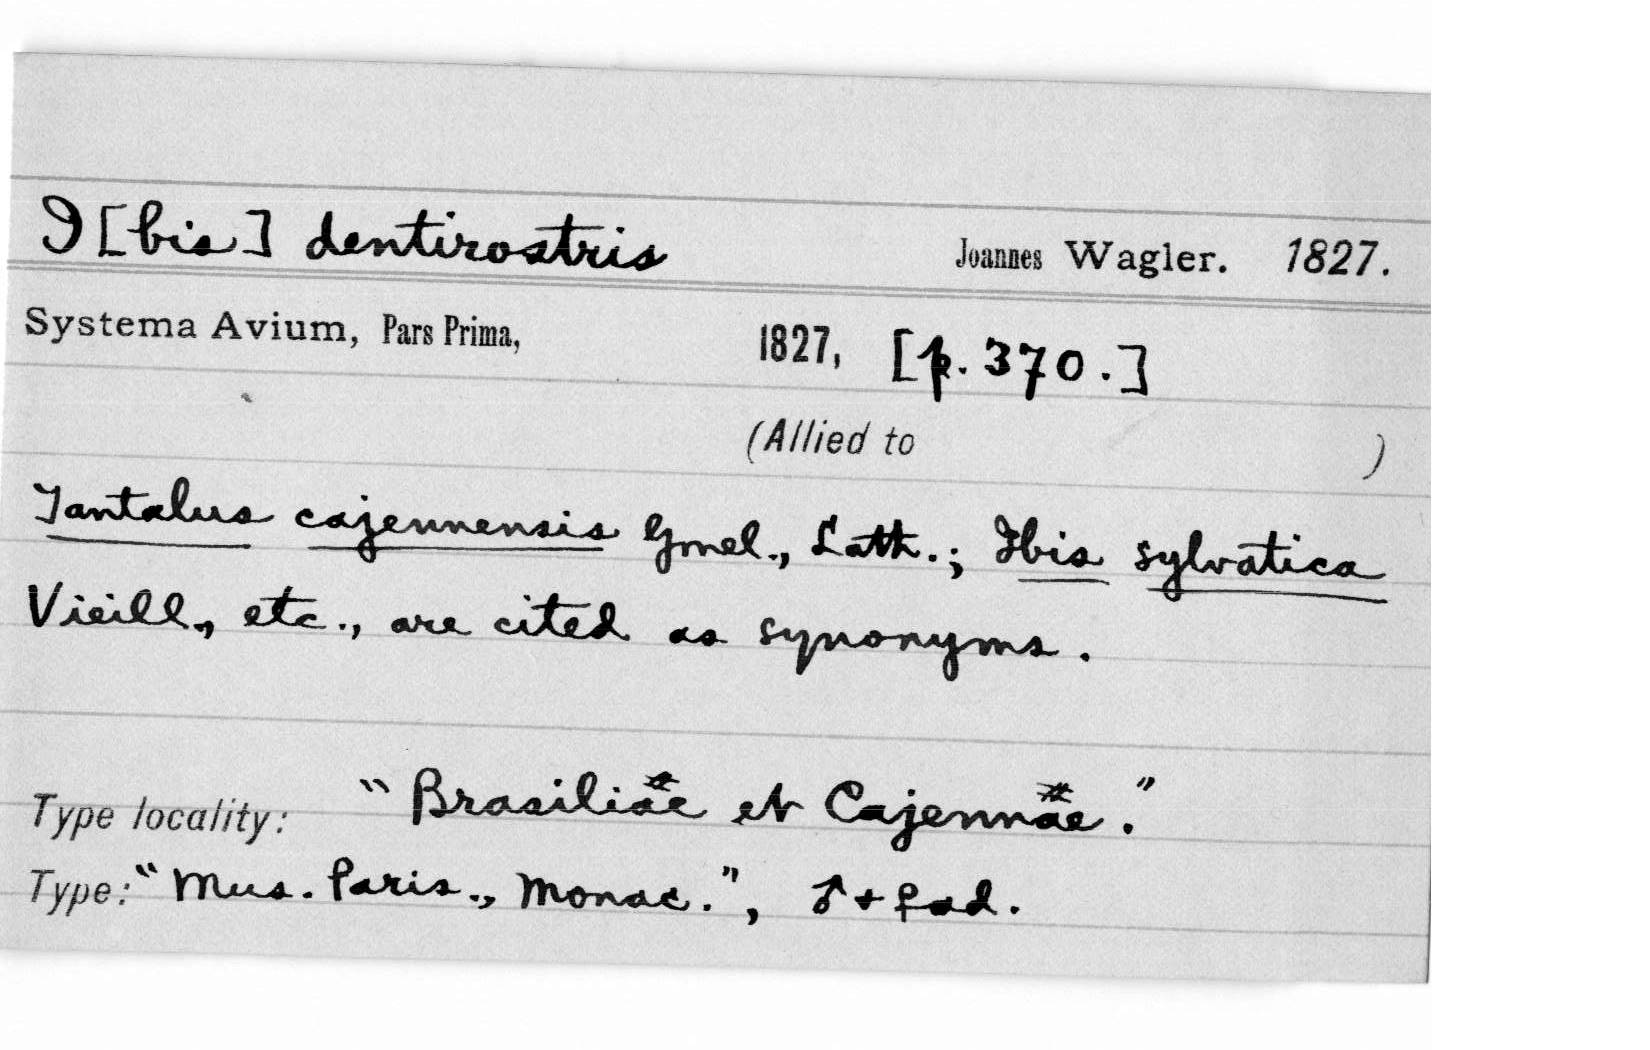 I[bis] dentirostris Joannes Wagler. 1827.
Systema Avium, Pars Prima, 1827, [p. 370.]
(Allied to )
Tantalus cajennensis Gmel., Lath.; Ibis sylvatica
Vieill., etc., are cited as synonyms.
Type locality: "Brasiliae et Cajennae."
Type: "Mus. Paris., Monac.", ♂ + ♀ ad.